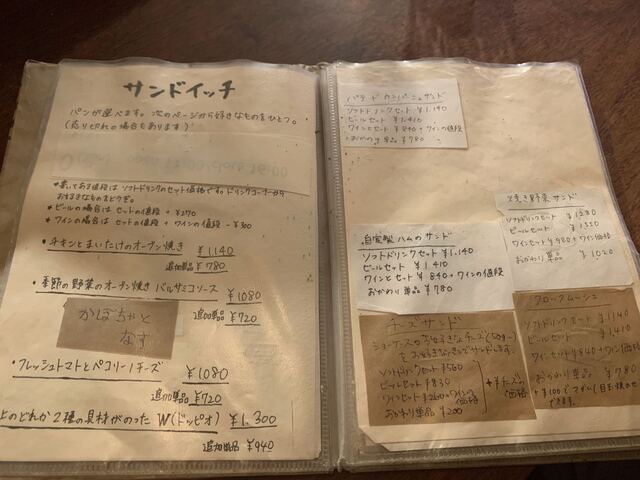 サンドイッチ
パンが選べます。次のページから好きなものをひとつ。
(売り切れの場合もあります)
*書いてある値段はソフトドリンクのセット価格です。ドリンクコーナーから
お好きなものをどうぞ。
*ビールの場合は セットの値段 + ¥270
*ワインの場合は セットの値段 + ワインの値段 - ¥300
・チキンとまいたけのオーブン焼き ¥1140
追加単品 ¥780
・季節の野菜のオーブン焼き バルサミコソース ¥1080
追加単品 ¥720
かぼちゃと
なす
・フレッシュトマトとペコリーノチーズ ¥1080
追加単品 ¥720
上のどれか2種の具材がのった W(ドッピオ) ¥1.300
追加単品 ¥940
パテ・ド・カンパーニュサンド
ソフトドリンクセット ¥1.140
ビールセット ¥1.410
ワインセット ¥840 + ワインの値段
おかわり 単品 ¥780
焼き野菜サンド
ソフトドリンクセット
ビールセット
ワインセット ¥980 + ワイン価格
おかわり 単品 ¥1020
自家製ハムのサンド
ソフトドリンクセット ¥1.140
ビールセット ¥1410
ワインセット ¥840 + ワインの値段
おかわり 単品 ¥780
チーズサンド
ショーケースのお好きなチーズ(50g〜)
をお好きなパンでサンドします。
ソフトドリンクセット ¥560
ビールセット ¥830
ワインセット ¥260+ワイン価格
おかわり 単品 ¥200
+チーズの価格
クロックムッシュ
ソフトドリンクセット ¥1140
ビールセット ¥1410
ワインセット ¥840+ワイン価格
おかわり 単品 ¥780
+¥100で
できます。